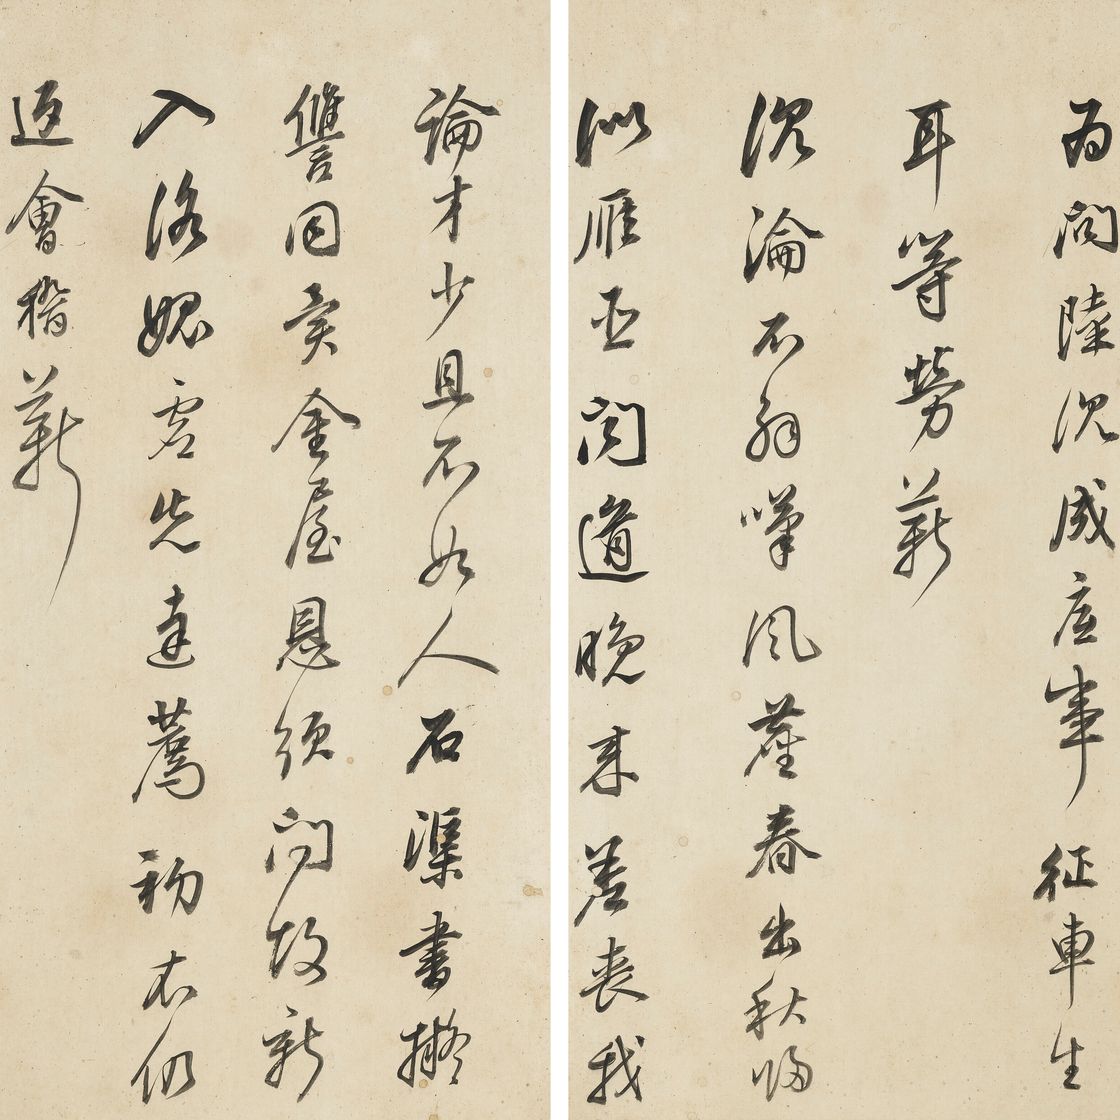 為問陸沉成底事征車生
耳等勞薪
沉淪不嘆風塵春出秋歸
似雁臣聞道晚来差喪我
論才少且不如人石渠書擬
讐同异金屋恩須問故新
入洛媿虛先達薦初衣仍
返會稽薪